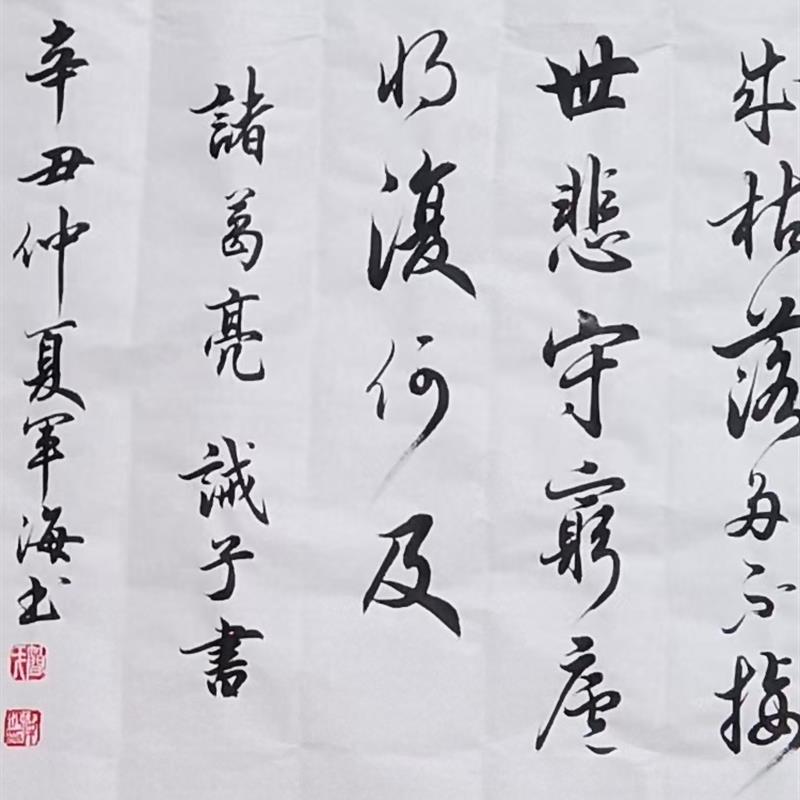 成枯落多不接
世悲守窮廬
将復何及
諸葛亮 誡子書
辛丑仲夏軍海书